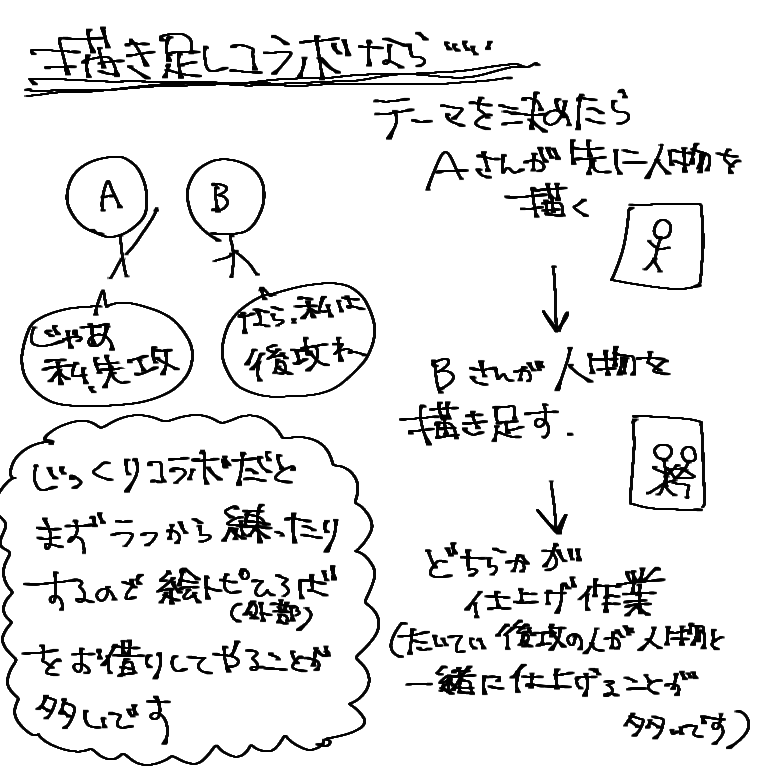 描き足しコラボなら…
テーマを決めたら
Aさんが先に人物を
描く
A
B
じゃあ
私、先攻
なら、私は
後攻ね
Bさんが人物を
描き足す.
どちらかが
仕上げ作業
(だいたい後攻の人が人物と
一緒に仕上げることが
多いです)
じっくりコラボだと
まずラフから練ったり
するので絵トピひろば
(外部)
をお借りしてやることが
多いです